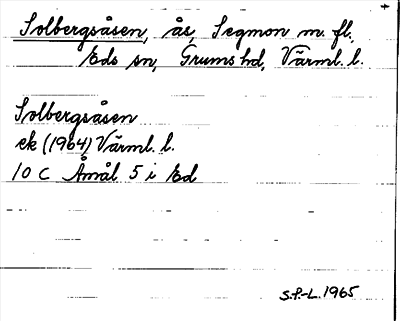 Solbergsåsen, ås, Segmon m. fl.,
Eds sn, Grums hd, Värml. l.
Solbergsåsen
ek (1964) Värml. l.
10 C Åmål 5 i Ed
S.P.-L. 1965